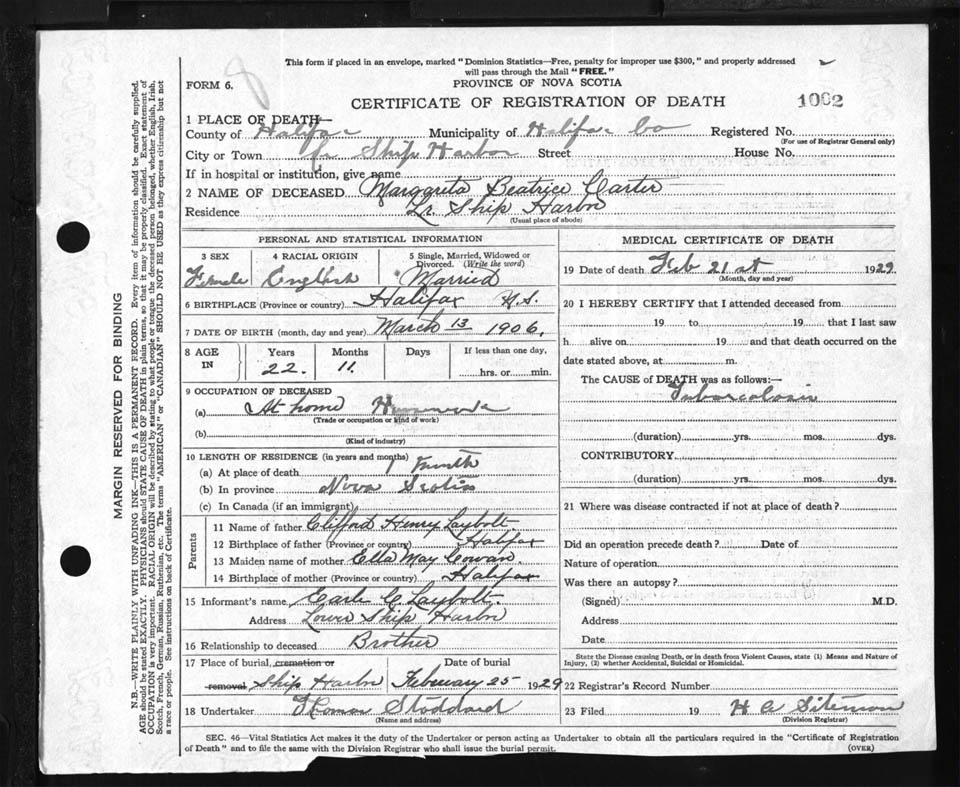 This form if placed in an envelope, marked "Dominion Statistics—Free, penalty for improper use $300," and properly addressed
will pass through the Mail "FREE."
FORM 6.
8
PROVINCE OF NOVA SCOTIA
CERTIFICATE OF REGISTRATION OF DEATH
1002
1 PLACE OF DEATH—
County of Halifax Municipality of Halifax Co Registered No.
(For use of Registrar General only)
City or Town Lr Ship Harbor Street House No.
If in hospital or institution, give name
2 NAME OF DECEASED Margareta Beatrice Carter
Residence Lr. Ship Harbor
(Usual place of abode)
PERSONAL AND STATISTICAL INFORMATION
3 SEX 4 RACIAL ORIGIN 5 Single, Married, Widowed or Divorced. (Write the word)
Female English Married
6 BIRTHPLACE (Province or country) Halifax N.S.
7 DATE OF BIRTH (month, day and year) March 13 1906,
8 AGE IN Years Months Days If less than one day,
22. 11. hrs. or min.
9 OCCUPATION OF DECEASED
(a) At home Housework
(Trade or occupation or kind of work)
(b)
(Kind of industry)
10 LENGTH OF RESIDENCE (in years and months)
(a) At place of death 1 month
(b) In province Nova Scotia
(c) In Canada (if an immigrant)
Parents
11 Name of father Clifford Henry Laybolt
12 Birthplace of father (Province or country) Halifax
13 Maiden name of mother Ella May Cowan
14 Birthplace of mother (Province or country) Halifax
15 Informant's name Earle C Laybolt.
Address Lower Ship Harbor
16 Relationship to deceased Brother
17 Place of burial, cremation or removal Date of burial
Ship Harbor February 25 1929
18 Undertaker Thomas Stoddard
(Name and address)
MEDICAL CERTIFICATE OF DEATH
19 Date of death Feb 21 st 1929
(Month, day and year)
20 I HEREBY CERTIFY that I attended deceased from
19 to 19 that I last saw
h alive on 19 and that death occurred on the
date stated above, at m.
The CAUSE of DEATH was as follows:—
Tuborcolosis
(duration) yrs. mos. dys.
CONTRIBUTORY
(duration) yrs. mos. dys.
21 Where was disease contracted if not at place of death?
Did an operation precede death? Date of
Nature of operation
Was there an autopsy?
(Signed) M.D.
Address
Date
State the Disease causing Death, or in death from Violent Causes, state (1) Means and Nature of
Injury, (2) whether Accidental, Suicidal or Homicidal.
22 Registrar's Record Number
23 Filed 19 H C Siteman
(Division Registrar)
SEC. 46—Vital Statistics Act makes it the duty of the Undertaker or person acting as Undertaker to obtain all the particulars required in the "Certificate of Registration
of Death" and to file the same with the Division Registrar who shall issue the burial permit.
(OVER)
MARGIN RESERVED FOR BINDING
N.B.—WRITE PLAINLY WITH UNFADING INK—THIS IS A PERMANENT RECORD. Every item of information should be carefully supplied.
AGE should be stated EXACTLY. PHYSICIANS should STATE CAUSE OF DEATH in plain terms, so that it may be properly classified. Exact statement of
OCCUPATION is very important. RACIAL ORIGIN will be described by stating to what people or tongue the deceased person belonged, whether English, Irish,
Scotch, French, German, Russian, Ruthenian, etc. The terms "AMERICAN" or "CANADIAN" SHOULD NOT BE USED as they express citizenship but not
a race or people. See instructions on back of Certificate.